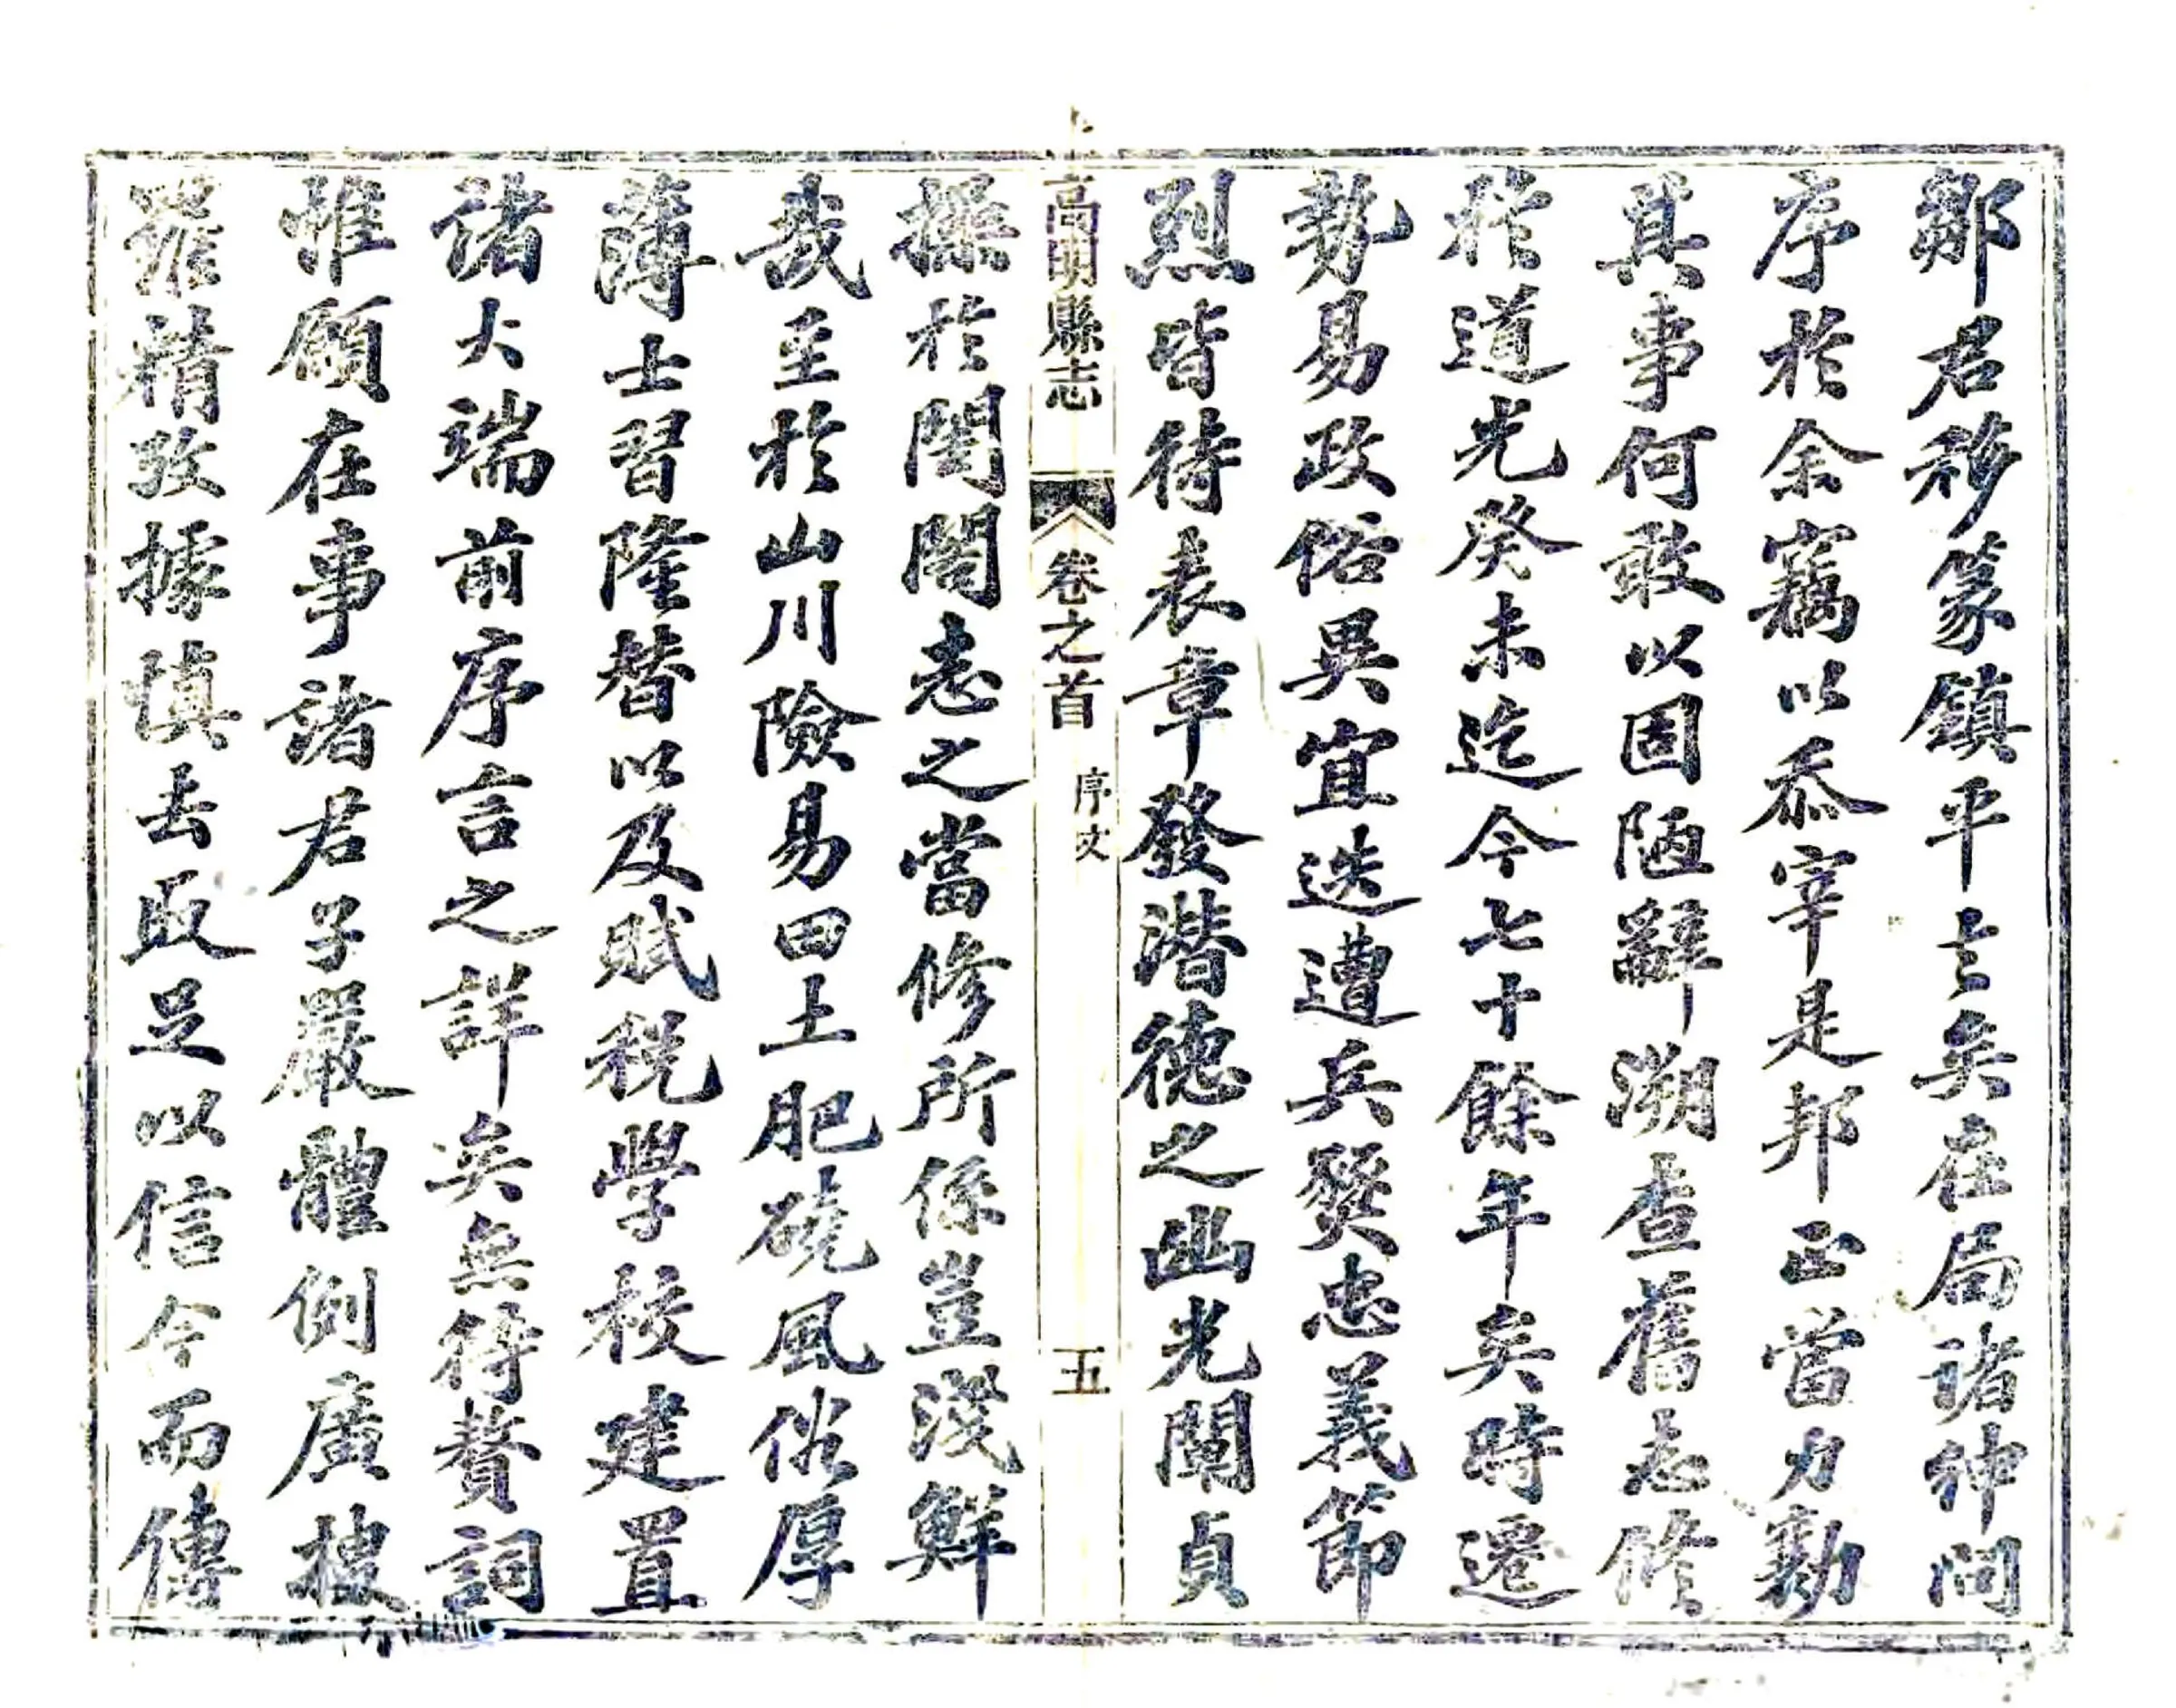 鄒君移篆鎮平去矣在局諸紳問
序於余竊以忝宰是邦正當力勷
其事何敢以固陋辭溯查舊志修
於道光癸未迄今七十餘年矣時遷
勢易政俗異宜迭遭兵燹忠義節
烈皆待表章發潛德之幽光闡貞
高明縣志 卷之首 序文 五
操於閨閣志之當修所係豈淺鮮
哉至於山川險易田土肥磽風俗厚
薄士習隆替以及賦稅學校建置
諸大端前序言之詳矣無待贅詞
惟願在事諸君子嚴體例廣搜
羅精攷據慎去取足以信今而傳